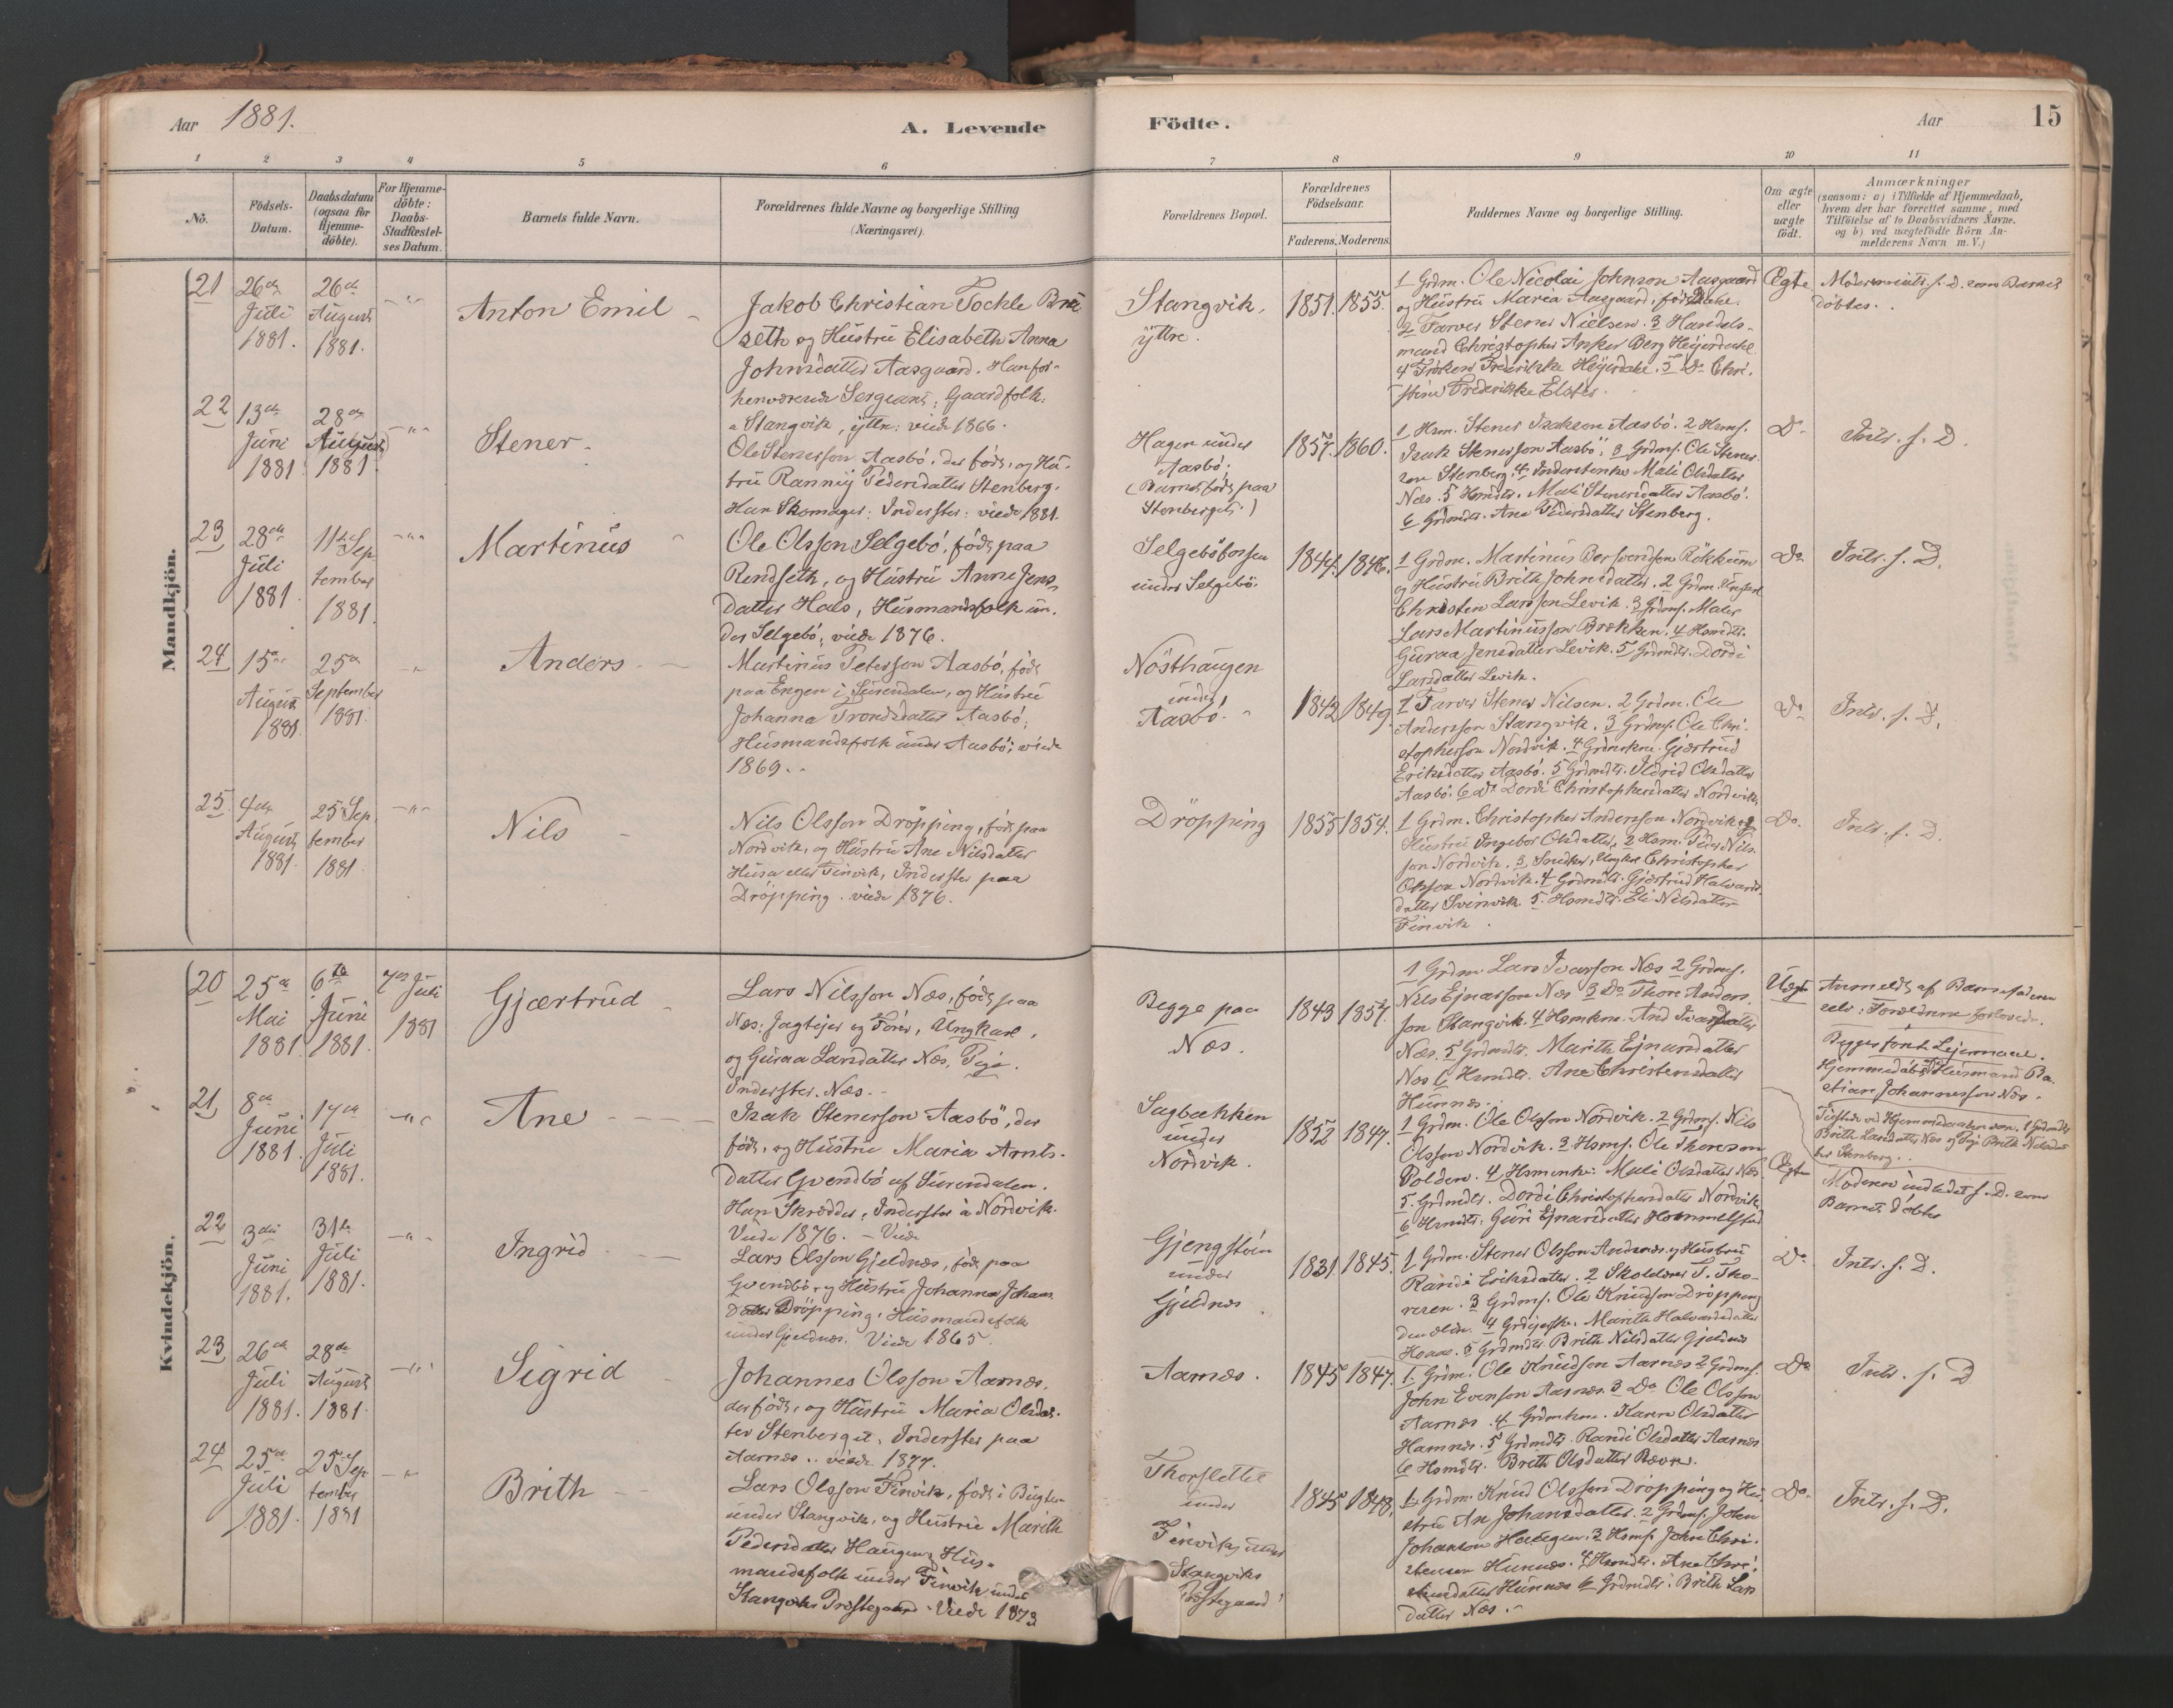 Aar 1881.
A. Levende
Födte.
Aar
15
1 2 3 4 5 6 7 8 9 10 11
No.
Födsels-
Datum.
Daabsdatum
(ogsaa for
Hjemme-
döbte).
For Hjemme-
döbte:
Daabs-
Stadfæstel-
ses Datum.
Barnets fulde Navn.
Forældrenes fulde Navne og borgerlige Stilling
(Næringsvei).
Forældrenes Bopæl.
Forældrenes
Födselsaar.
Faderens. Moderens.
Faddernes Navne og borgerlige Stilling.
Om ægte
eller
uægte
födt.
Anmærkninger
(saasom: a) i Tilfælde af Hjemmedaab,
hvem der har forrettet samme, med
Tilföielse af to Daabsvidners Navne.
og b) ved uægtefödte Börn An-
melderens Navn m. V.)
Mandkjön.
21
26de
Juli
1881.
26de
August
1881.
Anton Emil
Jakob Christian Tockle
seth og Hustru Elisabeth Anna
Johnsdatter Aasgaard. Han for-
henværende Sergeant; Gaardfolk
Stangvik, yttre: viede 1866.
Stangvik,
yttre.
1851. 1855.
1 Grdm. Ole Nicolai Johnson Aasgaard
og Hustru Maria Aasgaard, föd
2 Farver Stener Nielsen. 3 Handels-
mand Christopher Berg Heyerdahl
4 Fröken Fredrikke Heyerdahl. 5 Do Chri-
stine Fredrikke Elster.
Ægte
döbtes.
22
13de
Juni
1881
28de
August
1881
Stener
Ole Stenersson Aasbö, der föd, og Hu-
stru Rannig Pedersdatter Stenberg.
Han Skomager: Inderster: viede 1881.
Hagen under
Aasbö.
(Barnet födt paa
Stenberget.)
1857. 1860.
1 Hsm. Stener Isakson Aasbö. 2 Hsms.
Isak Stenersson Aasbö. 3 Grdms. Ole Stener-
son Stenberg. 4 Inderstenke Mali Olsdatter
Næs. 5 Hsmdtr. Mali Stenersdatter Aasbö.
6 Grdmdtr. Ane Pedersdatter Stenberg.
Do
Intr. s. D.
23
28de
Juli
1881
11te Sep-
tember
1881.
Martinus
Ole Olsson Selgebö, födt paa
Rendseth, og Hustru Anne Jens-
datter Hals, Husmandsfolk un-
der Selgebö, viede 1876.
Selgeböfossen
under Selgebö.
1844. 1846.
1 Grdm. Martinus Bersvendsen Rökkum
og Hustru Brith Johnsdatter. 2 Grdm. Ungkarl
Christen Larsson Levik. 3 Grdms. Maler
Lars Martinusson Brækken. 4 Hsmdtr.
Guraa Jensdatter Levik. 5 Grdmdtr. Dordi
Larsdatter Levik.
Do
Intr. s. D.
24
15de
August
1881
25de
September
1881.
Anders
Martinus Peterson Aasbö, födt
paa Engen i Surendalen, og Hustru
Johanna Trondsdatter Aasbö;
Husmandsfolk under Aasbö; viede
1869.
Nösthaugen
under
Aasbö.
1842 1849.
1 Farver Stener Nilsen. 2 Grdm. Ole
Andersson Stangvik. 3 Grdms. Ole Chri-
stopherson Nordvik. 4 Grdmskone Gjertrud
Eriksdatter Aasbö. 5 Grdmdtr. Ildrid Olsdatter
Aasbö. 6 Do Dordi Christophersdatter Nordvik.
Do
Intr. s. D.
25
4de
August
1881.
25 Sep-
tember
1881.
Nils
Nils Olsson Dröpping, födt paa
Nordvik, og Hustru Ane Nilsdatter
Husa eller Finvik, Inderster paa
Dröpping. viede 1876.
Dröpping
1855 1854.
1 Grdm. Christopher Anderson Nordvik og
Hustru Ingebor Olsdatter, 2 Hsm. Peder Nils-
son Nordvik. 3 Snedker, Ungkarl Christopher
Olsson Nordvik. 4 Grdmdtr. Gjertrud Halvards-
datter Svinvik. 5. Hsmdtr. Eli Nilsdatter
Finvik.
Do.
Intr. s. D.
Kvindekjön.
20
25de
Mai
1881.
6te
Juni
1881.
7de Juli
1881
Gjærtrud
Lars Nilsson Næs, födt paa
Næs; Jagtejer og Förer, Ungkarl,
og Guraa Larsdatter Næs, Pige.
Inderster. Næs.
Begge paa
Næs.
1843 1857.
1 Grdm. Lars Ivarson Næs 2 Grdms.
Nils Ejnarsson Næs 3 Do Thore Anders-
son Stangvik. 4 Hsmkone And Ivarsdatter
Næs. 5 Grdmdtr. Marith Ejnarsdatter
Næs 6 Hsmdtr. Ane Christensdatter
Hunnes.
Uægte
Anmeldt af Barnefaderen
selv: Forældrene forlovede.
Begges förste Lejermaal.
Hjemmedöbt af Husmand Ba-
stian Johannesson Næs.
Tilstede ved Hjemmedaaben vare 1 Grdmdtr
Brith Larsdatter Næs og Pige Brith Nilsdat-
ter Stenberg.
21
8de
Juni
1881.
17de
Juli
1881.
Ane
Isak Stenerson Aasbö, der
födt, og Hustru Maria Arnts-
datter Gvendbö af Surendalen.
Han Skrædder, Inderster à Nordvik.
Viede 1876.
Sagbækken
under
Nordvik.
1852 1847.
1 Grdm. Ole Olsson Nordvik. 2 Grdms. Nils
Olsson Nordvik. 3 Hsms. Ole Thoreson
Polden. 4 Hsmenke. Mali Olsdatter Næs
5. Grdmdtr. Dordi Christophersdatter Nordvik,
6 Hsmdtr. Guri Ejnarsdatter Hommelstad
Ægte
Moderen indledet s. D. som
Barnet döbtes
22
3die
Juni
1881.
31te
Juli
1881.
Ingrid
Lars Olsson Gjeldnæs, födt paa
Gvendbö, og Hustru Johanna Johans-
datter Dröpping, Husmandsfolk
under Gjeldnæs. Viede 1865.
Gjengstöen
under
Gjeldnæs
1831. 1845.
1 Grdm. Stener Olsson Andsnes og Hustru
Randi Eriksdatter. 2 Skolelærer T. Tho-
resen. 3 Grdms. Ole Knudson Dröpping
den ældre. 4 Marith Halvardsdatter
Hoaas. 5 Grdmdtr. Brith Nilsdatter Gjeldnæs
Do
Intr. s. D.
23
26de
Juli
1881.
28de
August
1881.
Sigrid
Johannes Olsson Aarnes,
der födt, og Hustru Maria Olsdat-
ter Stenberget, Inderster paa
Aarnes.. viede 1877.
Aarnæs.
1845 1847.
1. Grdm. Ole Knudson Aarnæs 2 Grdms.
John Evenson Aarnæs. 3 Do Ole Olsson
Aarnæs. 4 Grdmkone. Karen Olsdatter
Hamnes. 5 Grdmdtr. Randi Olsdatter Aarnæs
6 Hsmdtr. Brith Olsdatter Bævre.
Do
Intr. s. D
24
25de
Juli
1881.
25 Sep-
tember
1881
Brith
Lars Olsson Finvik, födt i Bugten
under Stangvik, og Hustru Marith
Pedersdatter Haugen; Hus-
mandsfolk under Finvik under
Stangviks Præstegaard. Viede 1873
Thorslette
under
Finvik, under
Stangviks
Præstegaard
1845 1848.
1. Grdm. Knud Olsson Dröpping og Hu-
stru An Johansdatter. 2 Grdms. John
Johanson Halsegen. 3 Hsms. John Chri-
stensen Hunnes. 4 Hsmdtr. Ane Chri-
stensdatter Hunnes 6 Grdmdtr. Brith Lars-
datter Næs.
Do.
Intr. s. D.